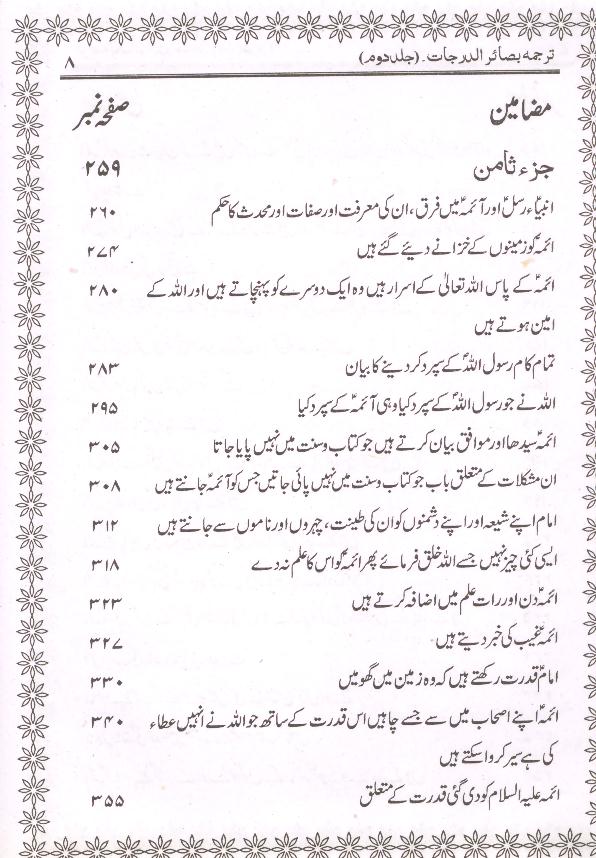 ترجمہ بصائر الدرجات۔ (جلد دوم) ۸
مضامین صفحہ نمبر
جزء ثامن ۲۵۹
انبیاءؑ رسلؑ اور آئمہؑ میں فرق، ان کی معرفت اور صفات اور محدث کا حکم ۲۶۰
ائمہؑ کو زمینوں کے خزانے دیئے گئے ہیں ۲۷۴
ائمہؑ کے پاس اللہ تعالیٰ کے اسرار ہیں وہ ایک دوسرے کو پہنچاتے ہیں اور اللہ کے ۲۸۰
امین ہوتے ہیں
تمام کام رسول اللہؐ کے سپرد کر دینے کا بیان ۲۸۳
اللہ نے جو رسول اللہؐ کے سپرد کیا وہی آئمہؑ کے سپرد کیا ۲۹۵
ائمہؑ سیدھا اور موافق بیان کرتے ہیں جو کتاب و سنت میں نہیں پایا جاتا ۳۰۵
ان مشکلات کے متعلق باب جو کتاب و سنت میں نہیں پائی جاتیں جس کو آئمہؑ جانتے ہیں ۳۰۸
امام اپنے شیعہ اور اپنے دشمنوں کو ان کی طینت، چہروں اور ناموں سے جانتے ہیں ۳۱۲
ایسی کئی چیز نہیں جسے اللہ خلق فرمائے پھر ائمہؑ کو اس کا علم نہ دے ۳۱۸
ائمہؑ دن اور رات علم میں اضافہ کرتے ہیں ۳۲۳
ائمہؑ غیب کی خبر دیتے ہیں ۳۲۷
امامؑ قدرت رکھتے ہیں کہ وہ زمین میں گھومیں ۳۳۰
ائمہؑ اپنے اصحاب میں سے جسے چاہیں اس قدرت کے ساتھ جو اللہ نے انہیں عطاء ۳۴۰
کی ہے سیر کروا سکتے ہیں
ائمہ علیہ السلام کو دی گئی قدرت کے متعلق ۳۵۵